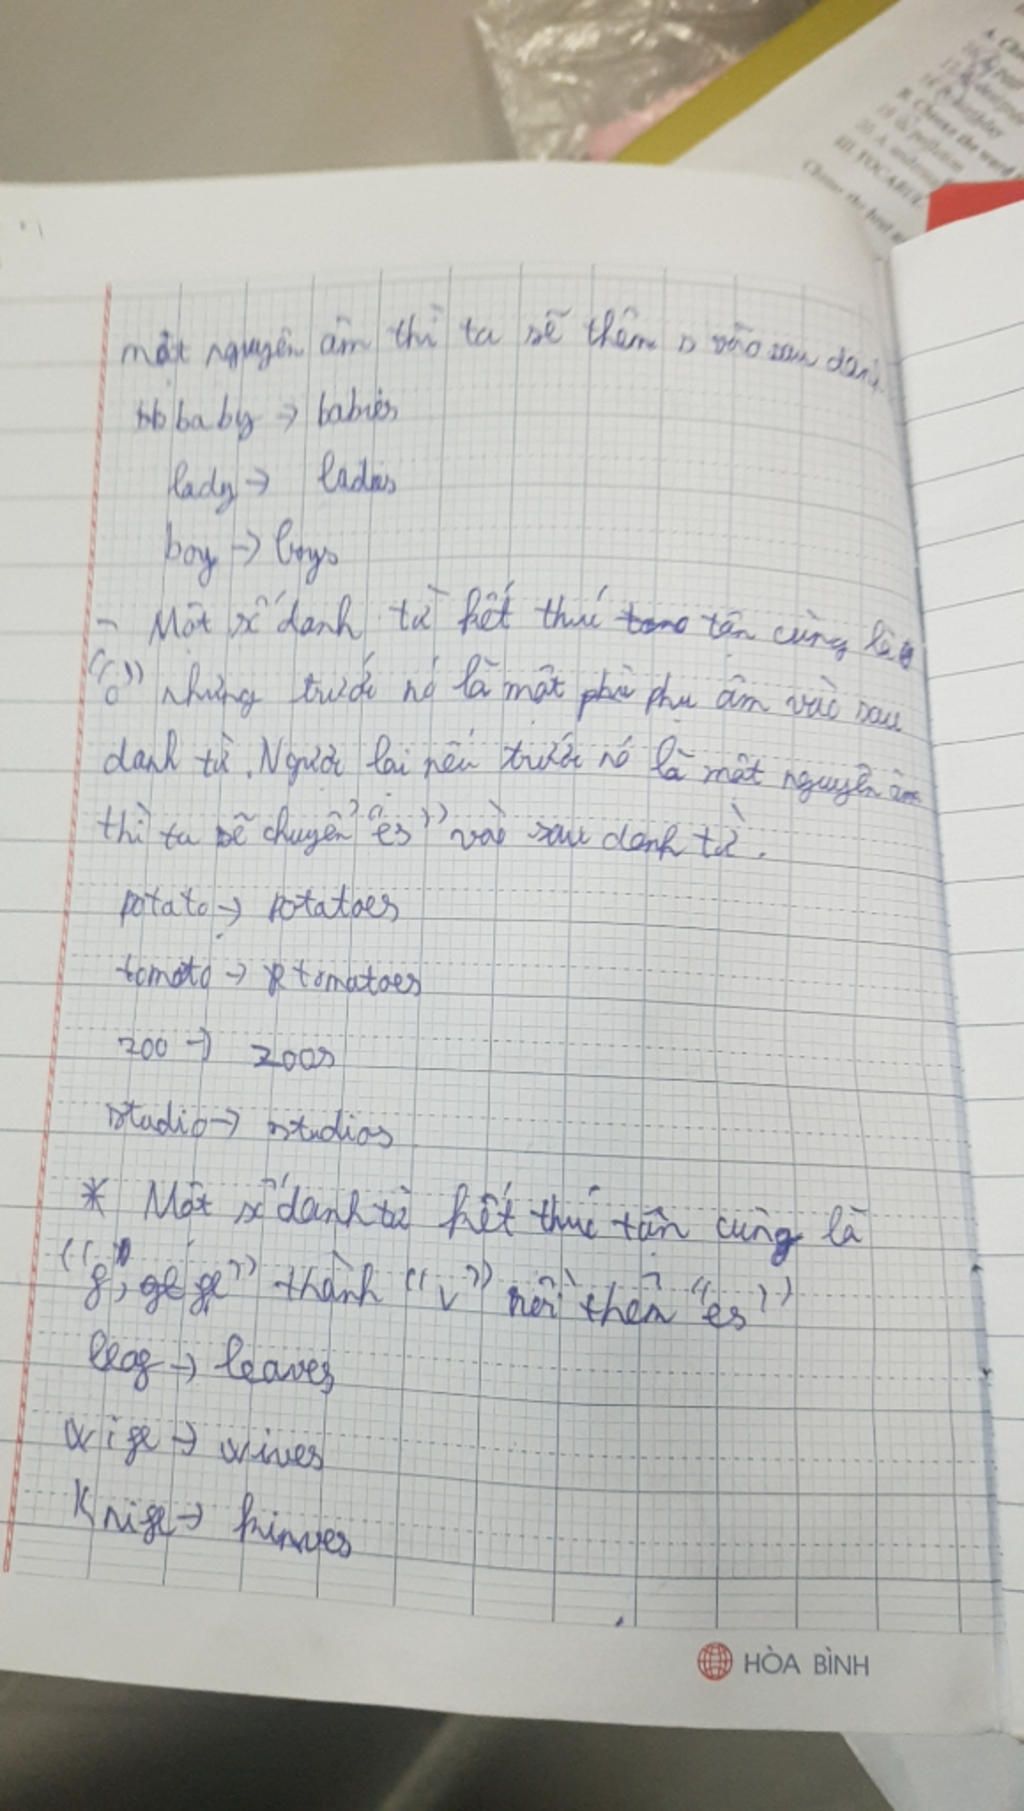 A. Ch
B. Choose the word
pollution
III. VOCABUL
Choose the best
một nguyên âm thì ta sẽ thêm s vào sau danh
baby → babies
lady → ladies
boy → boys
- Một số danh từ kết thúc tận cùng là
"o" nhưng trước nó là một phụ âm vào sau
danh từ. Ngược lại nếu trước nó là một nguyên âm
thì ta sẽ chuyển "es" vào sau danh từ.
potato → potatoes
tomato → tomatoes
zoo → zoos
studio → studios
* Một số danh từ kết thúc tận cùng là
"f, fe" thành "v" rồi thên "es"
leaf → leaves
wife → wives
Knife → kinves
HÒA BÌNH